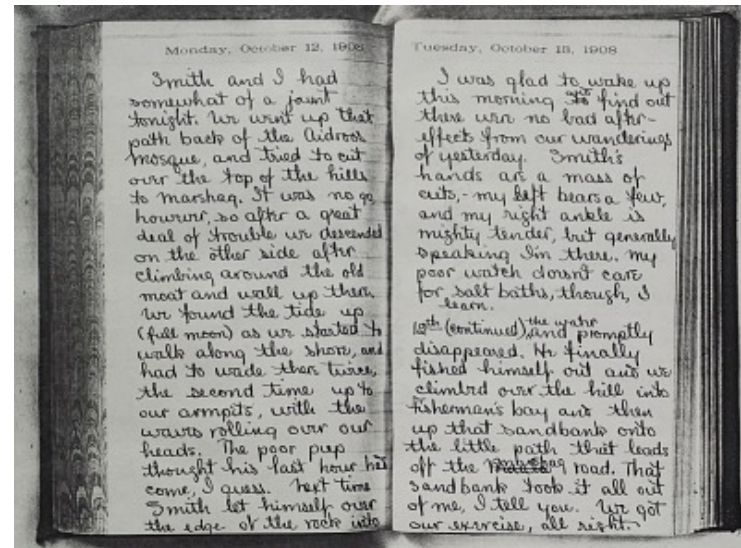 Monday, October 12, 1908
Smith and I had
somewhat of a jaunt
tonight. We went up that
path back of the Aidroos
Mosque, and tried to cut
over the top of the hills
to Marshag. It was no go,
however, so after a great
deal of trouble we descended
on the other side after
climbing around the old
moat and wall up there.
We found the tide up
(full moon) as we started to
walk along the shore, and
had to wade there twice,
the second time up to
our armpits, with the
waves rolling over our
heads. The poor pup
thought his last hour had
come, I guess. Next time
Smith let himself over
the edge of the rock into
Tuesday, October 13, 1908
I was glad to wake up
this morning to find out
there were no bad after-
effects from our wanderings
of yesterday. Smith's
hands are a mass of
cuts,- my left bears a few,
and my right ankle is
mighty tender, but generally
speaking I'm there. My
poor watch doesn't care
for salt baths, though, I
learn.
12th (continued), the water and promptly
disappeared. He finally
fished himself out and we
climbed over the hill into
Fisherman's bay and then
up that sandbank onto
the little path that leads
off the Marshag road. That
sandbank took it all out
of me, I tell you. We got
our exercise, all right.